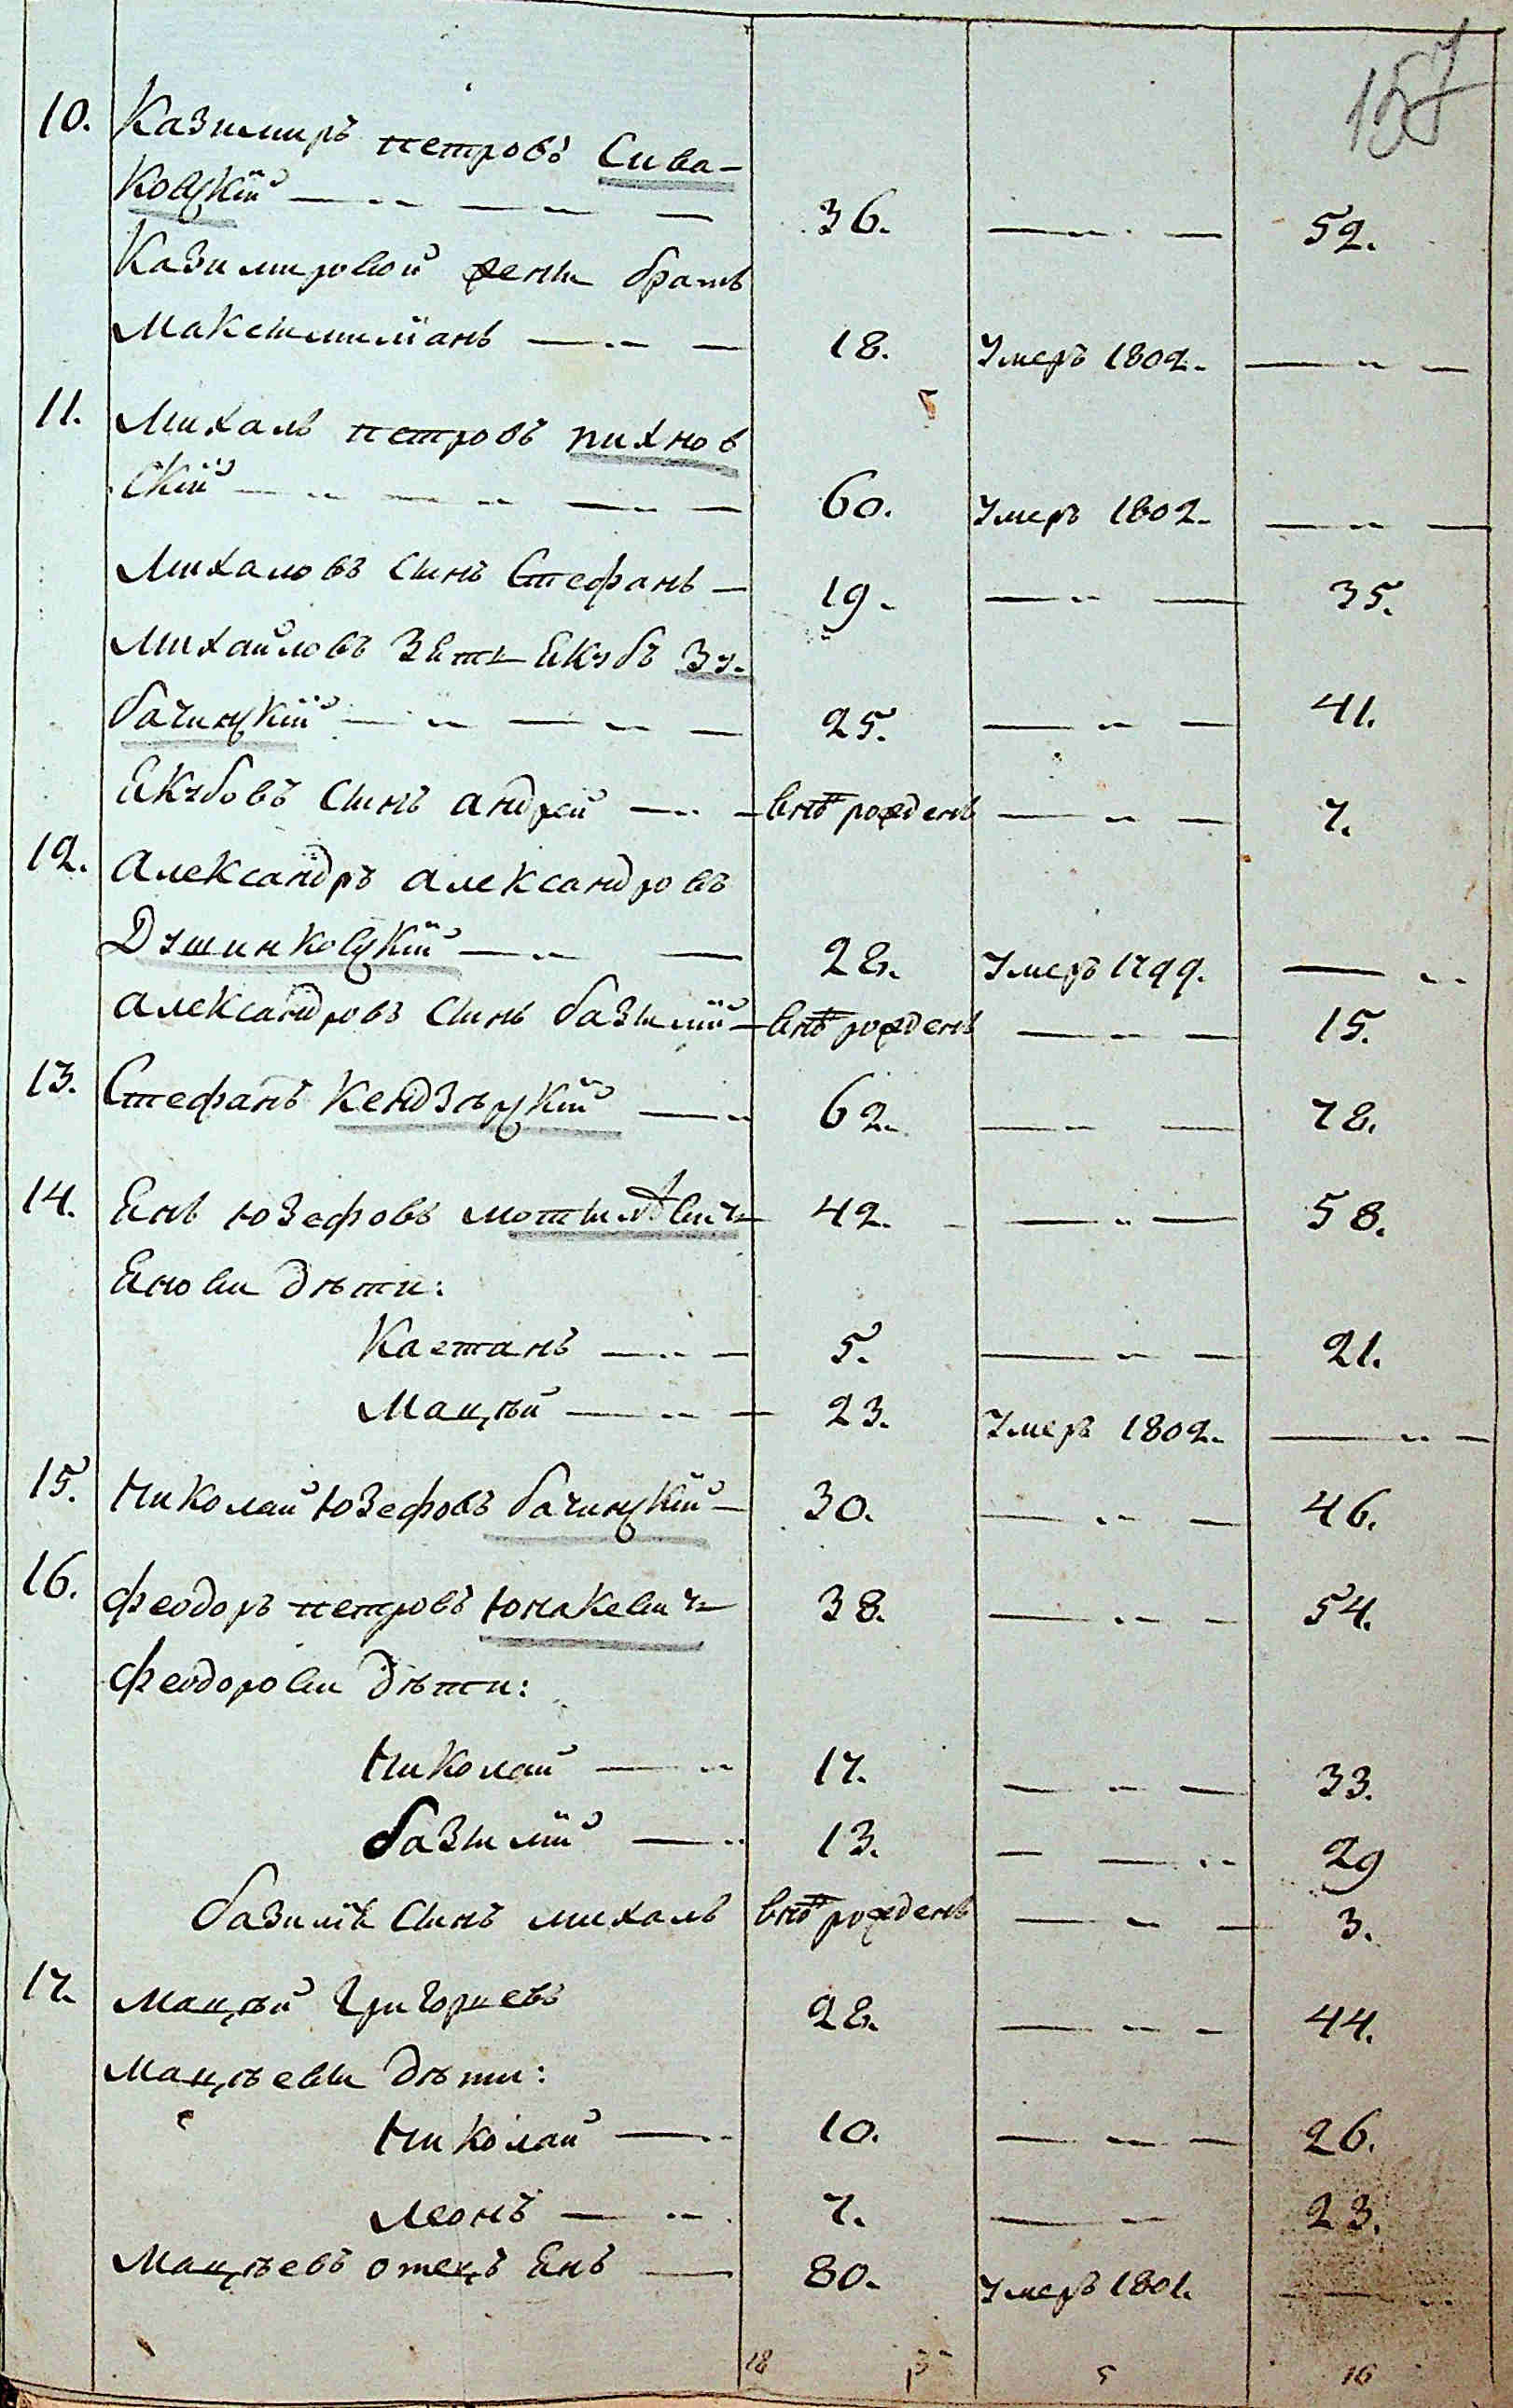 157
10. Казимиръ петровъ Сива-
ковскій — 36. — 52.
Казимировой жены братъ
Максимиліанъ — 18. Умеръ 1802. —
11. Михаль петровъ пихнов
скій — 60. Умеръ 1802. —
Михаловъ сынъ Стефанъ — 19. — 35.
Михайловъ зять Якубъ Зу-
бачинскій — 25. — 41.
Якубовъ сынъ андрей — внѣ рожденъ — 7.
12. Александръ александровъ
Душинковскій — 28. Умеръ 1799. —
александровъ сынъ базилій — внѣ рожденъ — 15.
13. Стефанъ Кендзѣрскій — 62. — 78.
14. Янъ юзефовъ мотылевичъ 42. — 58.
Яновы дѣти:
Каетанъ — 5. — 21.
Мацѣй — 23. Умеръ 1802. —
15. Николай Юзефовъ бачинскій — 30. — 46.
16. феодоръ петровъ Юнакевичъ 38. — 54.
феодоровы дѣти:
Николай — 17. — 33.
базилій — 13. — 29
базилія сынъ михаль внѣ рожденъ — 3.
17. Мацѣй Григорьевъ 28. — 44.
Мацѣевы дѣти:
Николай — 10. — 26.
Леонъ — 7. — 23.
Мацѣевъ отецъ Янъ — 80. Умеръ 1801. —
18 3 5 16